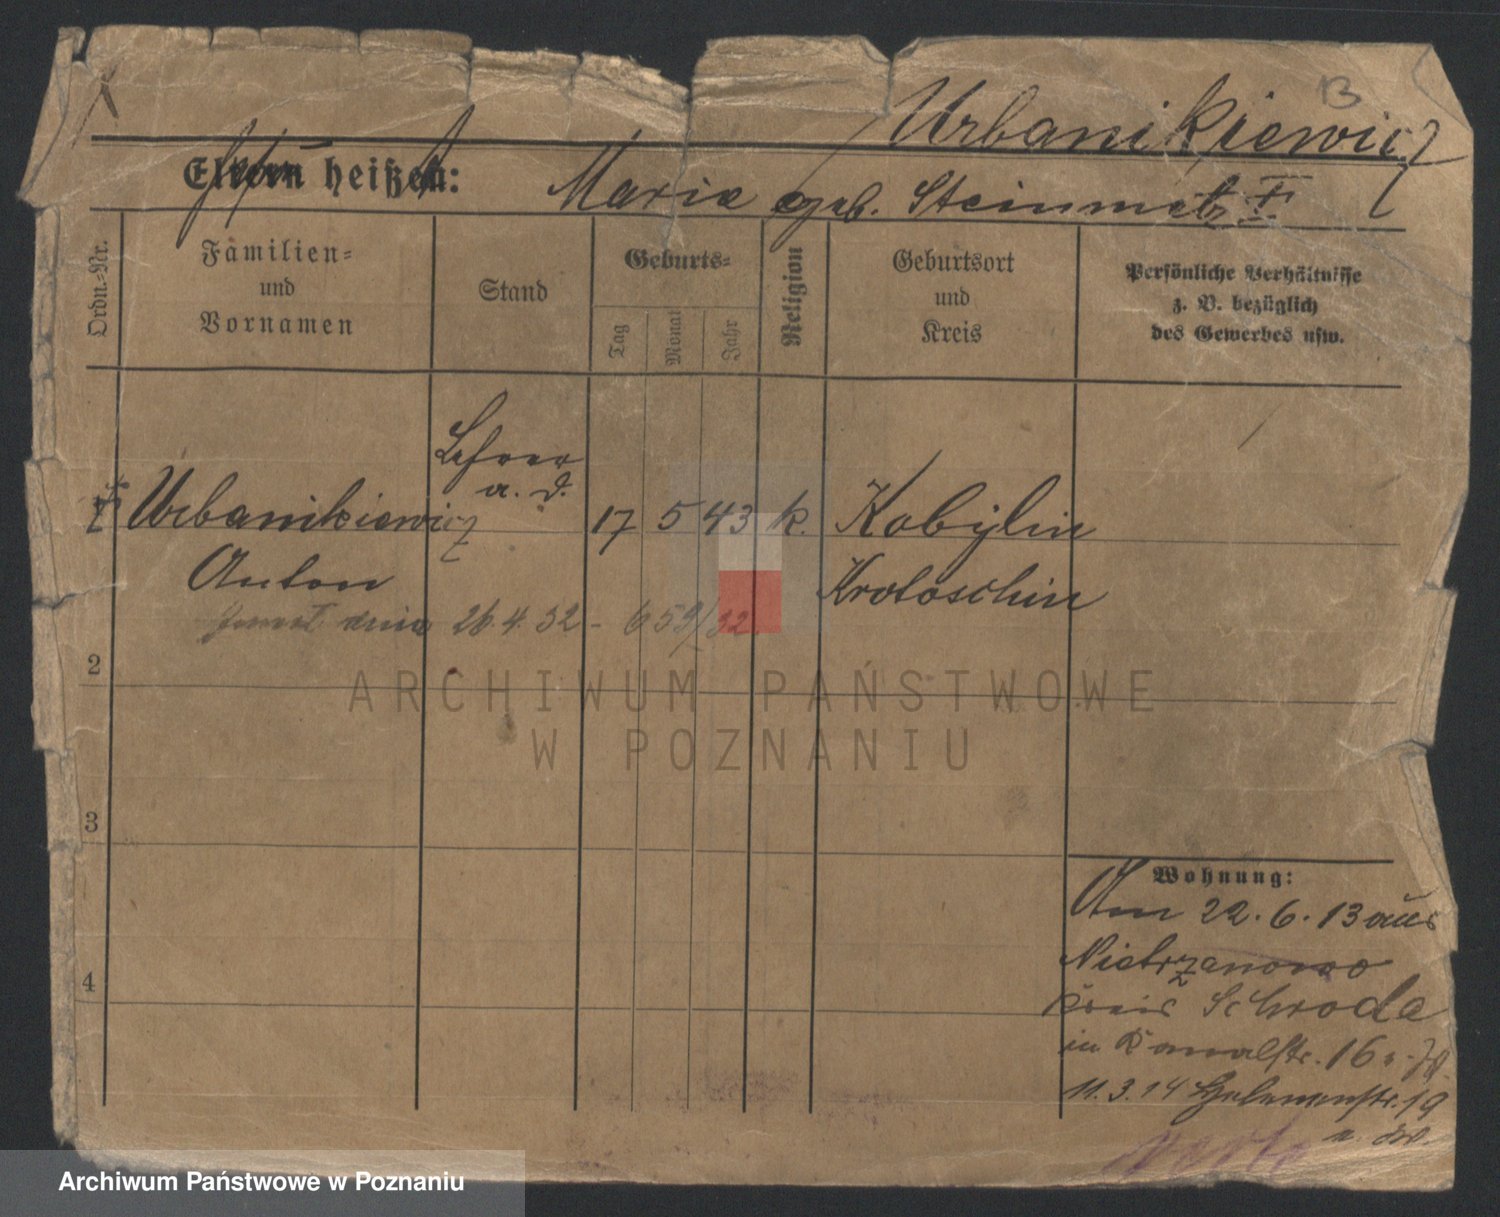 13
Urbanikiewicz
Eltern heißen:
Maria geb. Steinmetz
Ordn.-Nr.
Familien-
und
Vornamen
Stand
Geburts-
Tag
Monat
Jahr
Religion
Geburtsort
und
Kreis
Persönliche Verhältnisse
z. B. bezüglich
des Gewerbes usw.
Lehrer
a. D.
Urbanikiewicz 17 5 43 k. Kobylin
Anton Krotoschin
26.4.32 - 659/32
2
3
4
ARCHIWUM PAŃSTWOWE
W POZNANIU
Wohnung:
Am 22.6.13 aus
Nietrzanowo
Kreis Schroda
in Kanalstr. 16
11.3.14 Helenenstr. 19
verte
Archiwum Państwowe w Poznaniu